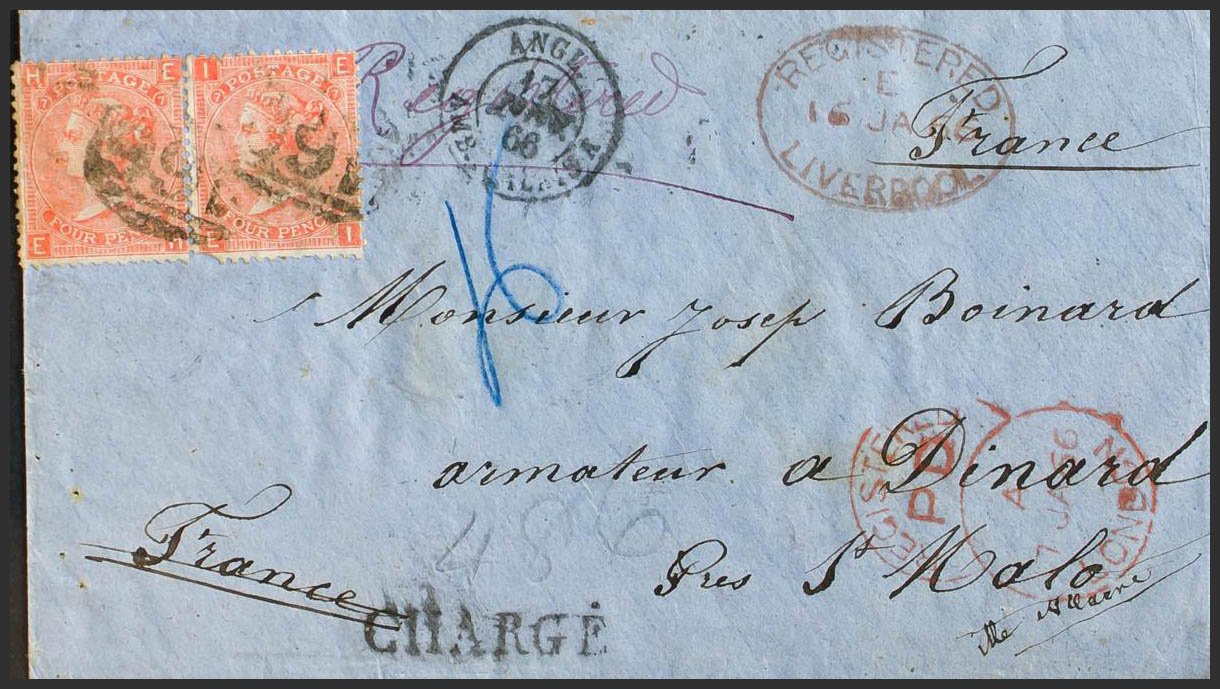 H E
POSTAGE
FOUR PENCE
E H
I E
POSTAGE
FOUR PENCE
E I
Registered
ANGL
17
66
CALAIS
REGISTERED
E
16 JA
LIVERPOOL
France
Monsieur Josep Boinard
armateur a Dinard
Pres St Malo
Ille
REGISTERED
PD
LONDON
A
JA 66
486
France
CHARGÉ